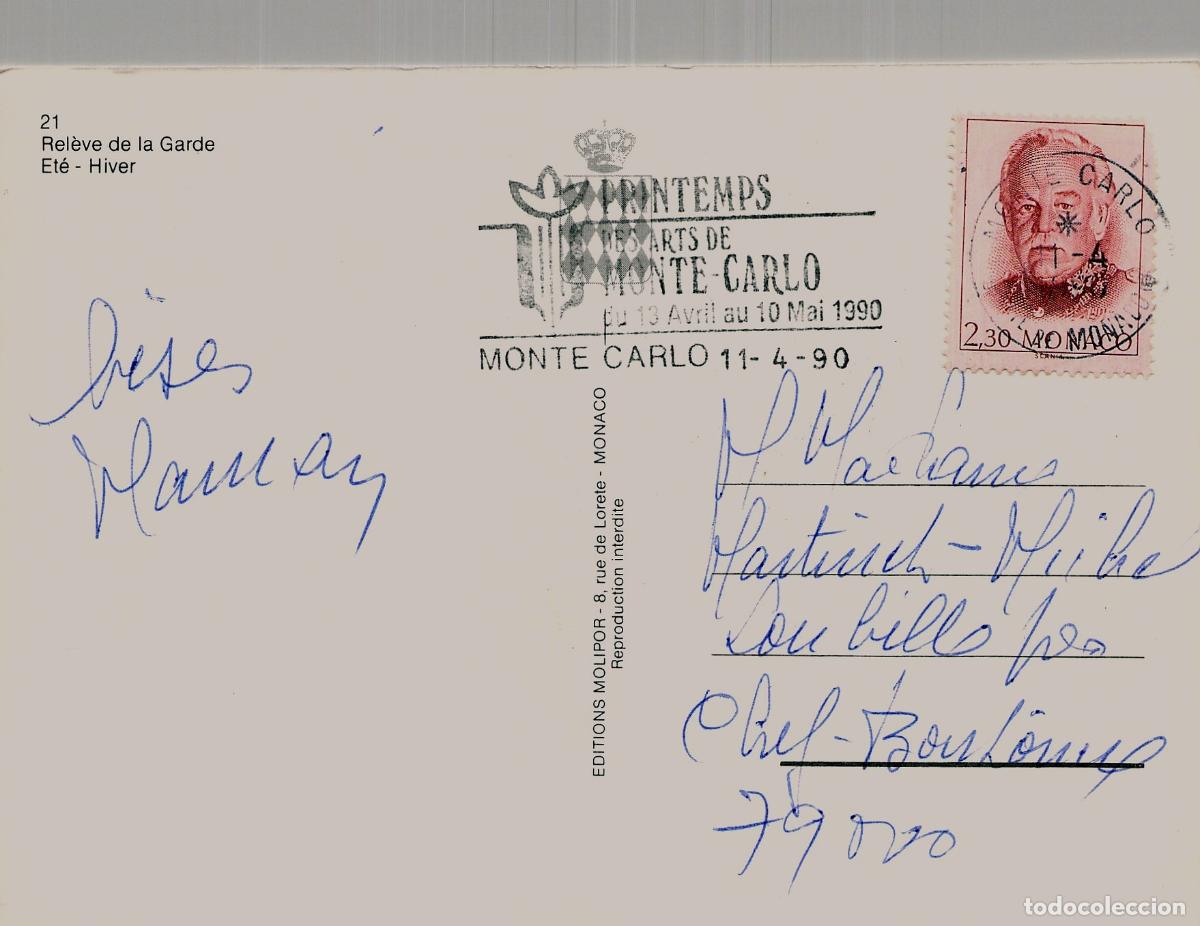 21
Relève de la Garde
Eté - Hiver
PRINTEMPS
DES ARTS DE
MONTE-CARLO
du 13 Avril au 10 Mai 1990
MONTE CARLO 11-4-90
MONTE CARLO
11-4
MONACO
2,30 MONACO
bises
Maman
EDITIONS MOLIPOR - 8, rue de Lorete - MONACO
Reproduction interdite
M Madame
Chef-Boutonne
79000
todocoleccion